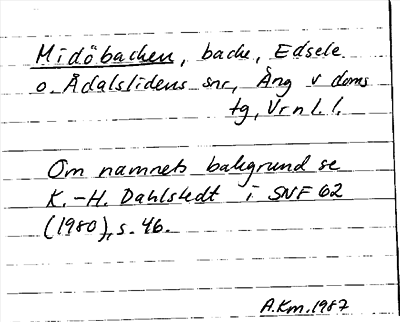 Midöbacken, backe, Edsele
o. Ådalslidens snr, Ång v doms
tg, Vrnl. l.
Om namnets bakgrund se
K.-H. Dahlstedt i SNF 62
(1980), s. 46.
A.Km.1987